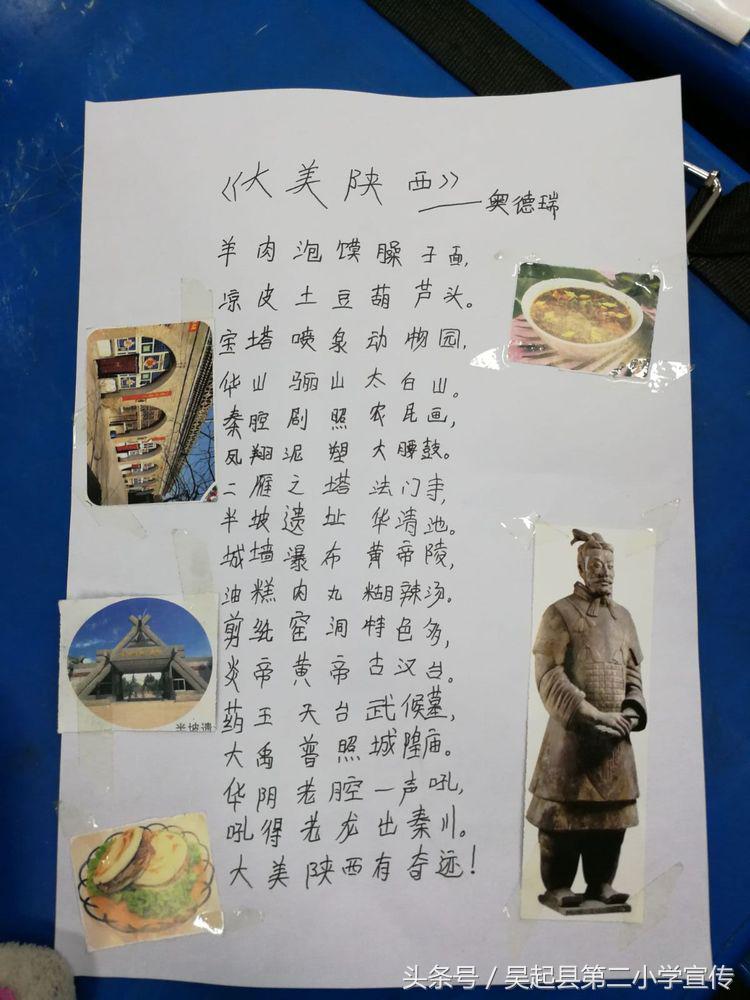 《大美陕西》
——奥德瑞
羊肉泡馍臊子面，
凉皮土豆葫芦头。
宝塔喷泉动物园，
华山骊山太白山。
秦腔剧照农民画，
凤翔泥塑大腰鼓。
二雁之塔法门寺，
半坡遗址华清池。
城墙瀑布黄帝陵，
油糕肉丸糊辣汤。
剪纸窑洞特色多，
炎帝黄帝古汉台。
药王天台武候墓，
大禹普照城隍庙。
华阴老腔一声吼，
吼得老龙出秦川。
大美陕西有夺迹！
半坡遗
头条号／吴起县第二小学宣传